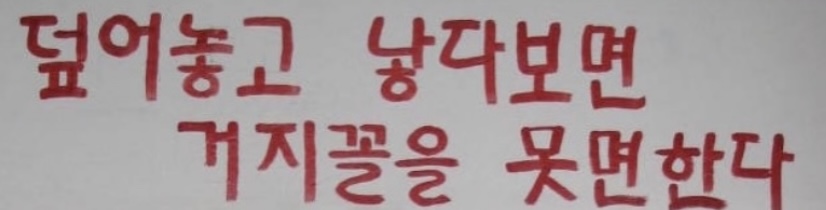 덮어놓고 낳다보면
거지꼴을 못면한다